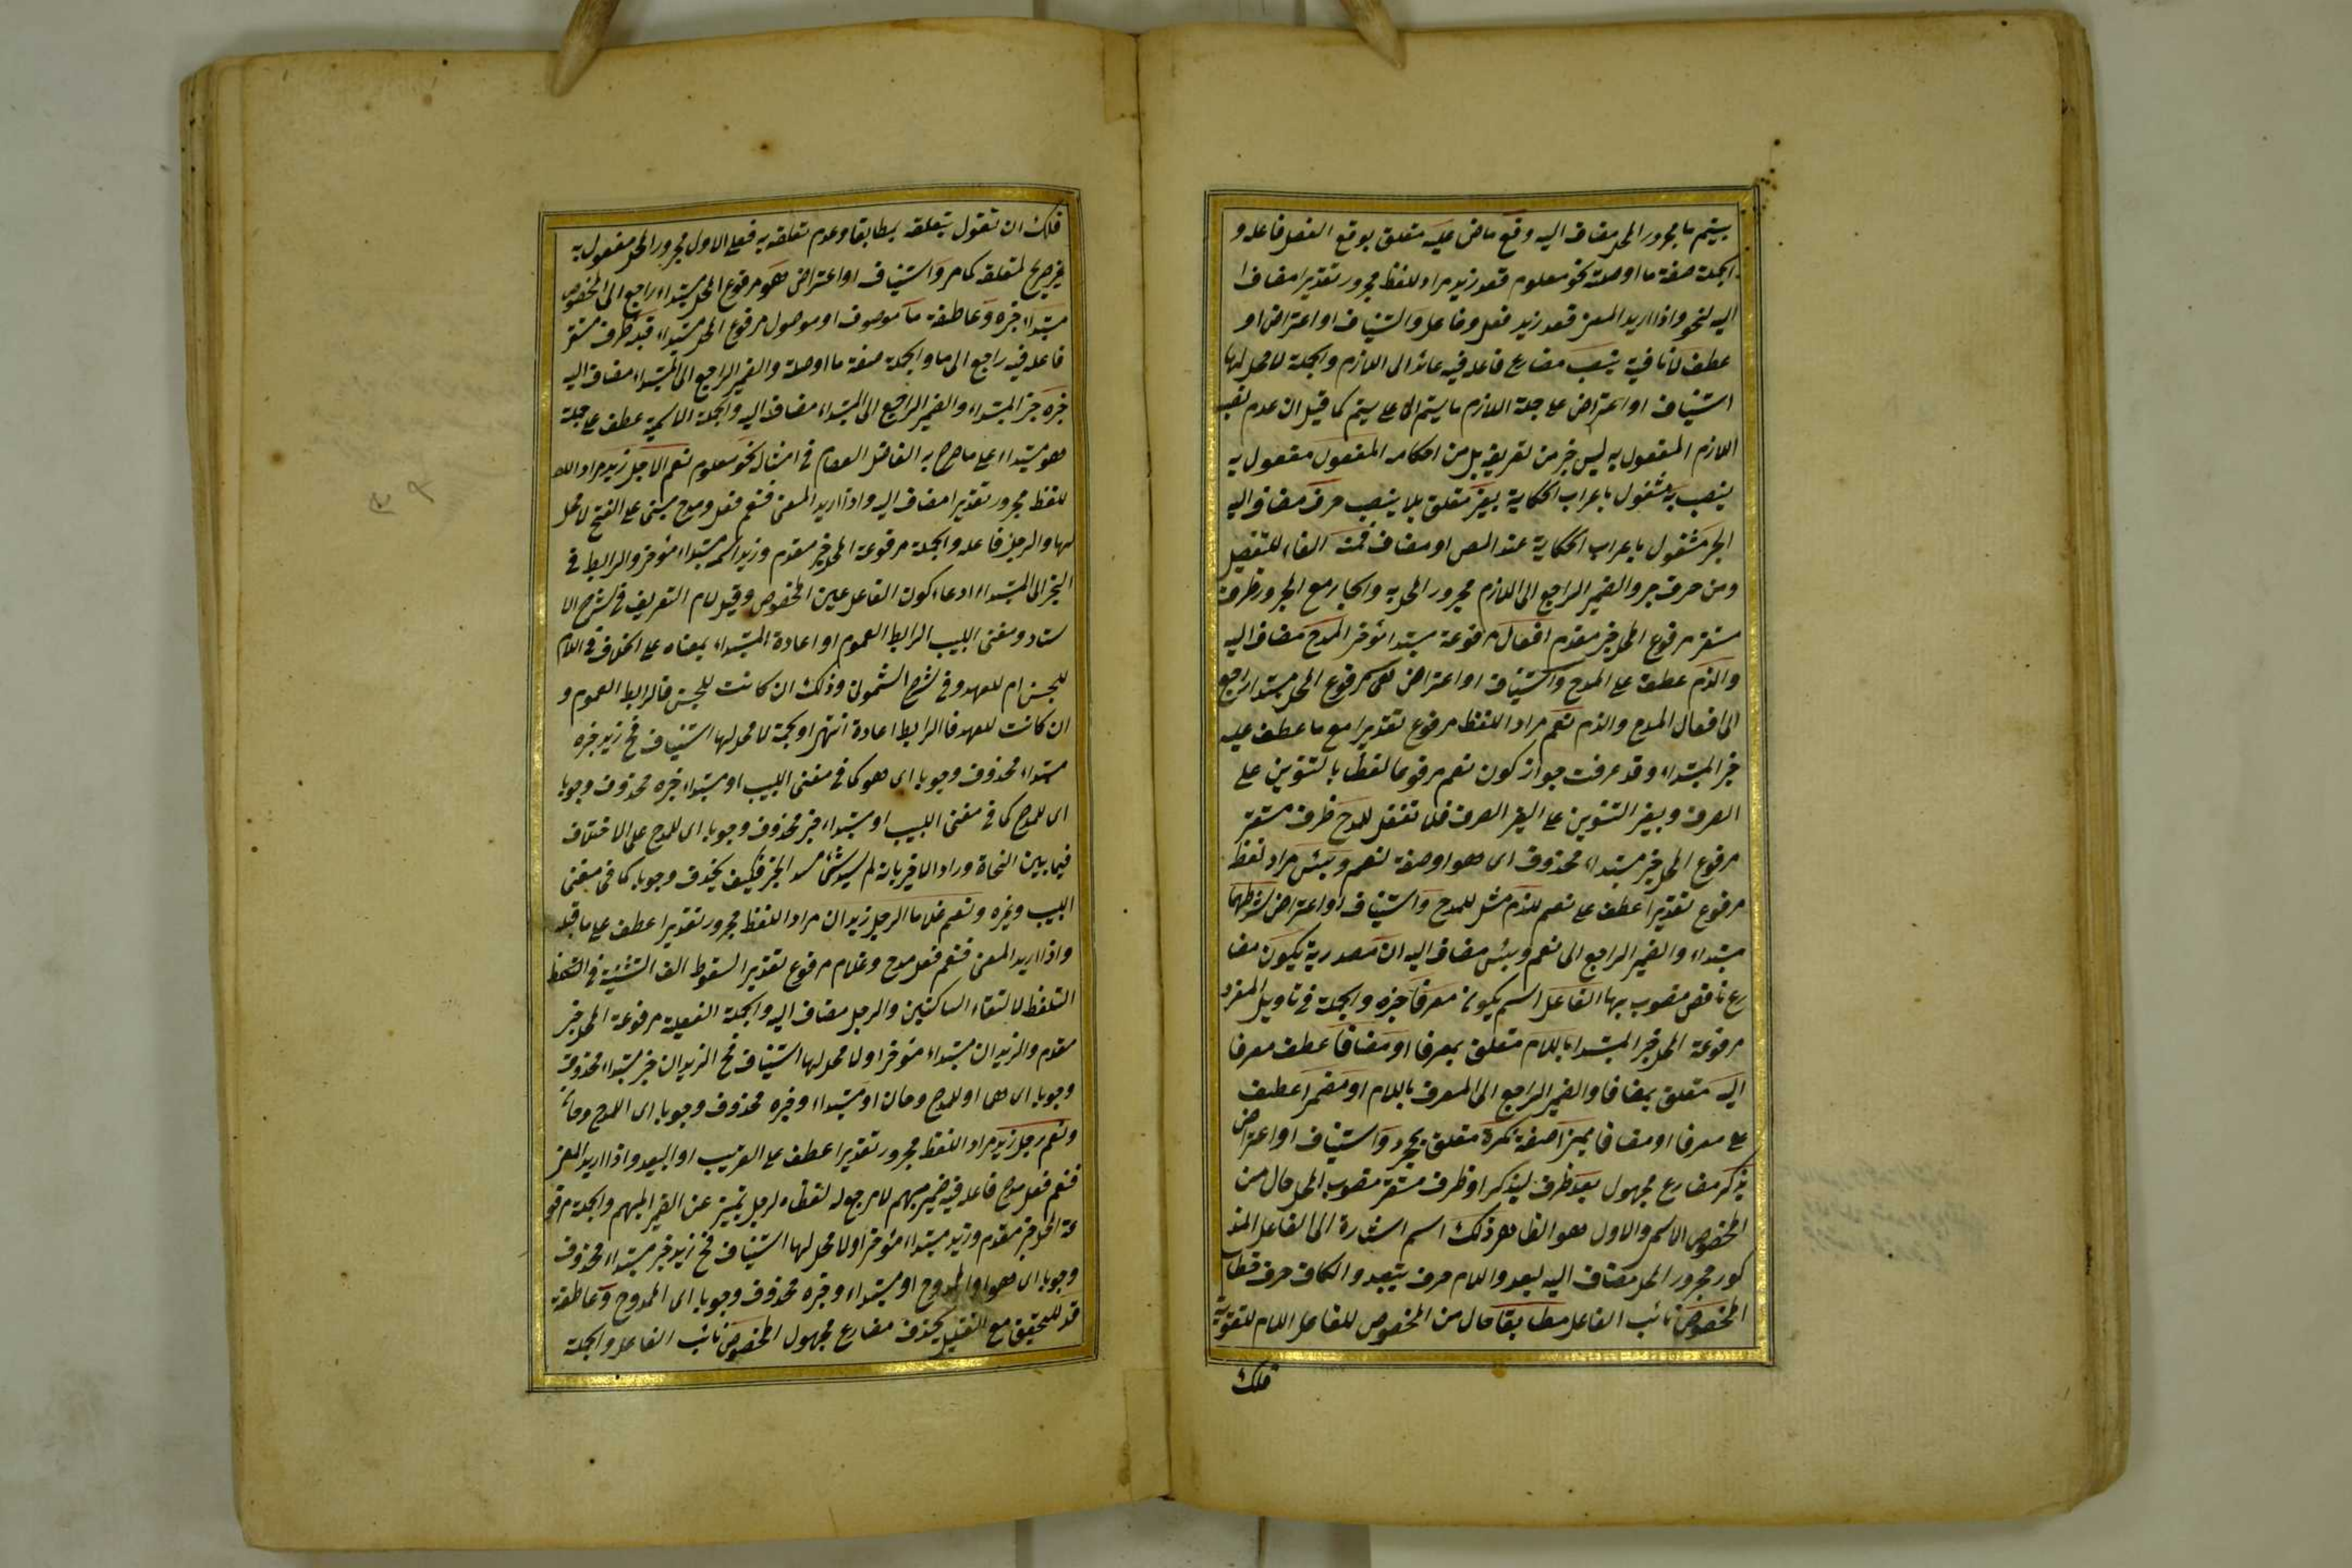 يتم ما مجرور المحل مضاف اليه وقع ماض عليه متعلق بوقع الفعل فاعله و
الجملة صفة ما او صلة نحو معلوم قعد زيد مراد اللفظ مجرور تقديرا مضاف ا
اليه لنحو واذا اريد المعنى قعد زيد فعل وفاعل واستيناف او اعتراض او
عطف لا نافية ينصب مضارع فاعله فيه عائد الى اللازم والجملة لا محل لها
استيناف او اعتراض على جملة اللازم ما يتم الخ كما قيل ان عدم نصب
اللازم المفعول به ليس جزء من تعريفه بل من احكامه المفعول مفعول به
ينصب به مشغول باعراب الحكاية بغير متعلق بلا ينصب حرف مضاف اليه
الجر مشغول باعراب الحكاية عند المص او مضاف فمنه الفاء للتفصيل
ومن حرف جر والضمير الراجع الى اللازم مجرور المحل به والجار مع المجرور ظرف
مستقر مرفوع المحل خبر مقدم افعال مرفوعة مبتدا مؤخر المدح مضاف اليه
والذم عطف على المدح واستيناف او اعتراض هى مرفوع المحل مبتدا راجع
الى افعال المدح والذم نعم مراد اللفظ مرفوع تقديرا مع ما عطف عليه
خبر المبتداء وقد عرفت جواز كون نعم مرفوعا لفظا بالتنوين على
الصرف وبغير التنوين على الغير الصرف فلا تغفل للمدح ظرف مستقر
مرفوع المحل خبر مبتداء محذوف اى هو او صفة لنعم وبئس مراد لفظه
مرفوع تقديرا عطف على نعم للذم مثل للمدح واستيناف او اعتراض شرطهما
مبتداء والضمير الراجع الى نعم وبئس مضاف اليه ان مصدرية يكون مضا
رع ناقص منصوب بها الفاعل اسم يكون معرفا خبره والجملة فى تاويل المفرد
مرفوعة المحل خبر المبتدا باللام متعلق بمعرفا او مضافا عطف معرفا
اليه متعلق بمضافا والضمير الراجع الى المعرف باللام او مضمرا عطف
على معرفا او مضافا مميزا صفة نكرة متعلق واستيناف او اعتراض
يذكر مضارع مجهول بعد ظرف ليذكر او ظرف مستقر منصوب المحل حال من
المخصوص الاسم والاول هو الظاهر ذلك اسم اشارة الى الفاعل المذ
كور مجرور المحل مضاف اليه لبعد واللام حرف تبعيد والكاف حرف خطاب
المخصوص نائب الفاعل مطابقا حال من المخصوص للفاعل اللام للتقوية
فلك
فلك ان تقول بتعلقه بمطابقا وعدم تعلقه به فعلى الاول مجرور المحل مفعول به
غير صريح لمتعلقه كما مر واستيناف او اعتراض هو مرفوع المحل مبتداء راجع الى المخصوص
مبتداء خبره وعاطفة ما موصوف او موصول مرفوع المحل مبتداء قبله ظرف مستقر
فاعله فيه راجع الى ما والجملة صفة ما او صلة والضمير الراجع الى المبتداء مضاف اليه
خبره خبر المبتداء والضمير الراجع الى المبتداء مضاف اليه والجملة الاسمية عطف على جملة
هو مبتداء على ما صرح به الفاضل العصام فى امثاله نحو معلوم نعم الرجل زيد مراد الل
للفظ مجرور تقديرا مضاف اليه واذا اريد المعنى فنعم فعل ومدح مبنى على الفتح لا محل
لها والرجل فاعله والجملة مرفوعة المحل خبر مقدم وزيد اسمه مبتداء مؤخر والرابط فى
الخبر الى المبتداء ادعاء كون الفاعل عين المخصوص وقيل لام التعريف فى شرح الا
ستاد ومغنى اللبيب الرابط العموم او اعادة المبتداء بمعناه على الخلاف فى اللام
للجنس ام للعهد وفى شرح الشمونى وذلك ان كانت للجنس فالرابط العموم و
ان كانت للعهد فالرابط اعادة انتهى او جملة لا محل لها استيناف فح زيد خبره
مبتداء محذوف وجوبا اى هو كما فى مغنى اللبيب او مبتداء خبره محذوف وجوبا
اى للمدح كما فى مغنى اللبيب او مبتداء خبر محذوف وجوبا اى للمدح على الاختلاف
فيما بين النحاة وراد الاخير بانه لم يسد شئ مسد الخبر فكيف يحذف وجوبا كما فى مغنى
اللبيب وغيره ونعم غلاما الرجل زيدان مراد اللفظ مجرور تقديرا عطف على ما قبله
واذا اريد المعنى فنعم فعل مدح وغلام مرفوع تقديرا لسقوط الف التثنية فى
التلفظ لالتقاء الساكنين والرجل مضاف اليه والجملة الفعلية مرفوعة المحل خبر
مقدم والزيدان مبتداء مؤخر او لا محل لها استيناف فح الزيدان خبر مبتداء محذوف
وجوبا اى هما او للمدح وحان او مبتداء وخبره محذوف وجوبا اى المدح
ونعم رجل زيد مراد اللفظ مجرور تقديرا عطف على القريب او البعيد واذا اريد المعنى
فنعم فعل مدح فاعله فيه ضمير مبهم لا مرجع له لفظا ورجل تمييز عن الضمير المبهم والجملة مرفو
عة المحل خبر مقدم وزيد مبتداء مؤخر او لا محل لها استيناف فح زيد خبر مبتداء محذوف
وجوبا اى هو او الممدوح او مبتداء وخبره محذوف وجوبا اى الممدوح وعاطفة
قد للتحقيق مع التقليل يحذف مضارع مجهول المخصوص نائب الفاعل والجملة